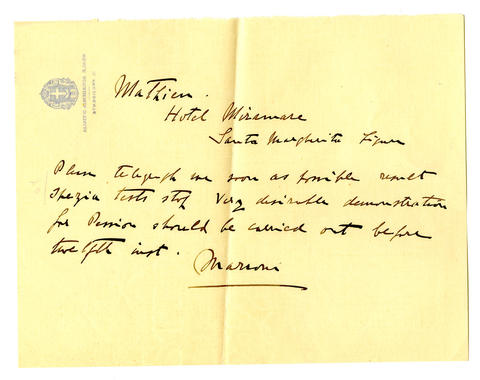 Mathieu.
Hotel Miramare
Santa Margherita Ligure
telegraph me soon as possible result
Spezia tests stop Very desirable demonstration
for should be carried out before
twelfth inst.
Marconi